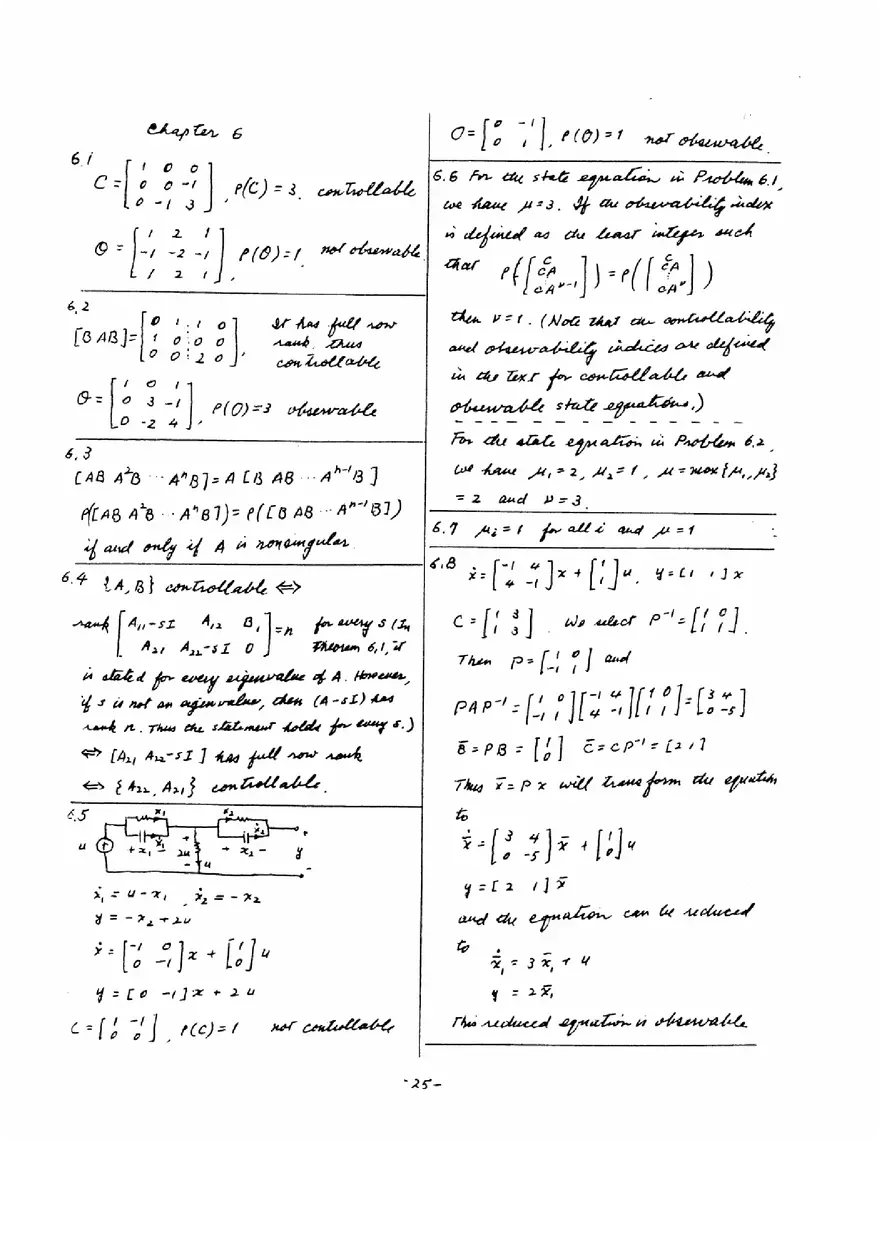 Chapter 6
6.1
C = [ 1 0 0 ; 0 0 -1 ; 0 -1 3 ], ρ(C) = 3. controllable
O = [ 1 2 1 ; -1 -2 -1 ; 1 2 1 ], ρ(O) = 1 not observable.
6.2
[B AB] = [ 0 1 ⋮ 1 0 ; 1 0 ⋮ 0 0 ; 0 0 ⋮ 2 0 ], It has full row
rank. thus
controllable
O = [ 1 0 1 ; 0 3 -1 ; 0 -2 4 ], ρ(O) = 3 observable
6.3
[AB A²B ··· AⁿB] = A [B AB ··· Aⁿ⁻¹B]
ρ([AB A²B ··· AⁿB]) = ρ([B AB ··· Aⁿ⁻¹B])
if and only if A is nonsingular.
6.4 {A, B} controllable ⇔
rank [ A₁₁-sI A₁₂ B₁ ; A₂₁ A₂₂-sI 0 ] = n for every s (In
Theorem 6.1, it
is stated for every eigenvalue of A. However,
if s is not an eigenvalue, then (A-sI) has
rank n. Thus the statement holds for every s.)
⇔ [A₂₁ A₂₂-sI] has full row rank
⇔ {A₂₂, A₂₁} controllable.
6.5
x₁ x₂
u + x₁ - 2u + - x₂ y
ẋ₁ = u - x₁, ẋ₂ = -x₂
y = -x₂ + 2u
ẋ = [ -1 0 ; 0 -1 ] x + [ 1 ; 0 ] u
y = [0 -1] x + 2u
C = [ 1 -1 ; 0 0 ], ρ(C) = 1 not controllable
O = [ 0 -1 ; 0 1 ], ρ(O) = 1 not observable.
6.6 For the state equation in Problem 6.1,
we have μ = 3. If the observability index
is defined as the least integer such
that ρ([ C ; CA ; CA^(ν-1) ]) = ρ([ C ; CA ; CA^ν ])
then ν = 1. (Note that the controllability
and observability indices are defined
in the text for controllable and
observable state equations.)
For the state equation in Problem 6.2,
we have μ₁ = 2, μ₂ = 1, μ = max{μ₁, μ₂}
= 2 and ν = 3.
6.7 μᵢ = 1 for all i and μ = 1
6.8 ẋ = [ -1 4 ; 4 -1 ] x + [ 1 ; 1 ] u, y = [1 1] x
C = [ 1 3 ; 1 3 ]. We select P⁻¹ = [ 1 0 ; 1 1 ].
Then P = [ 1 0 ; -1 1 ] and
PAP⁻¹ = [ 1 0 ; -1 1 ][ -1 4 ; 4 -1 ][ 1 0 ; 1 1 ] = [ 3 4 ; 0 -5 ]
B̄ = PB = [ 1 ; 0 ] C̄ = CP⁻¹ = [2 1]
Thus x̄ = Px will transform the equation
to
ẋ̄ = [ 3 4 ; 0 -5 ] x̄ + [ 1 ; 0 ] u
y = [2 1] x̄
and the equation can be reduced
to
ẋ̄₁ = 3x̄₁ + u
y = 2x̄₁
This reduced equation is observable.
-25-